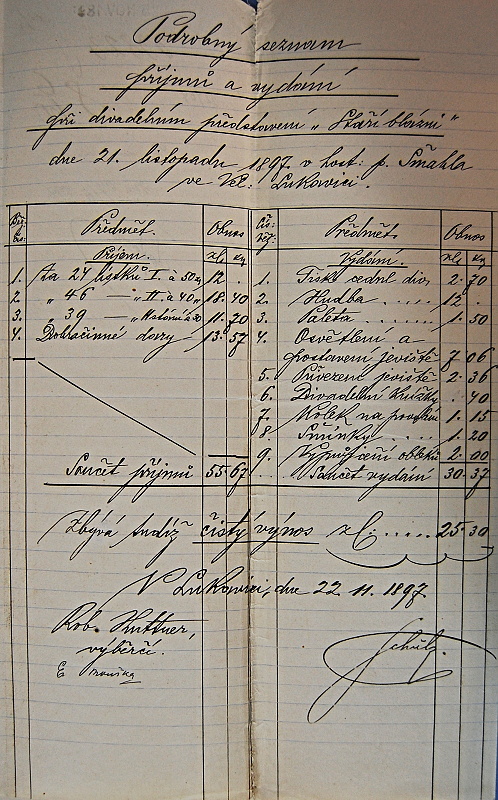 Podrobný seznam
příjmů a vydání
při divadelním představení „Staří blázni“
dne 21. listopadu 1897 v host: p. Smahla
ve Vel: Lukavici.
Předmět. Obnos
Příjem. zl. kr.
1. Za 24 lístků I. à 50 12 .
2. „ 46 — „ II. à 40 „ 18 40
3. „ 39 — „ à 30 11 70
4. Dobročinné dary 13 57
Součet příjmů 55 67
Předmět. Obnos
Vydání. zl. kr.
1. Tisk cedul div. 2 70
2. Hudba 12 .
3. Paleta 1 50
4. Osvětlení a
postavení jeviště 7 06
5. Přivezení jeviště 2 36
6. Divadelní knížky . 40
7. Kolek na 1 15
8. 1 20
9. Vypůjčení obleků 2 00
Součet vydání 30 37
Zbývá tudíž čistý výnos zl. 25 30
V Lukavici, dne 22. 11. 1897
Rob. Huttner,
výběrčí.